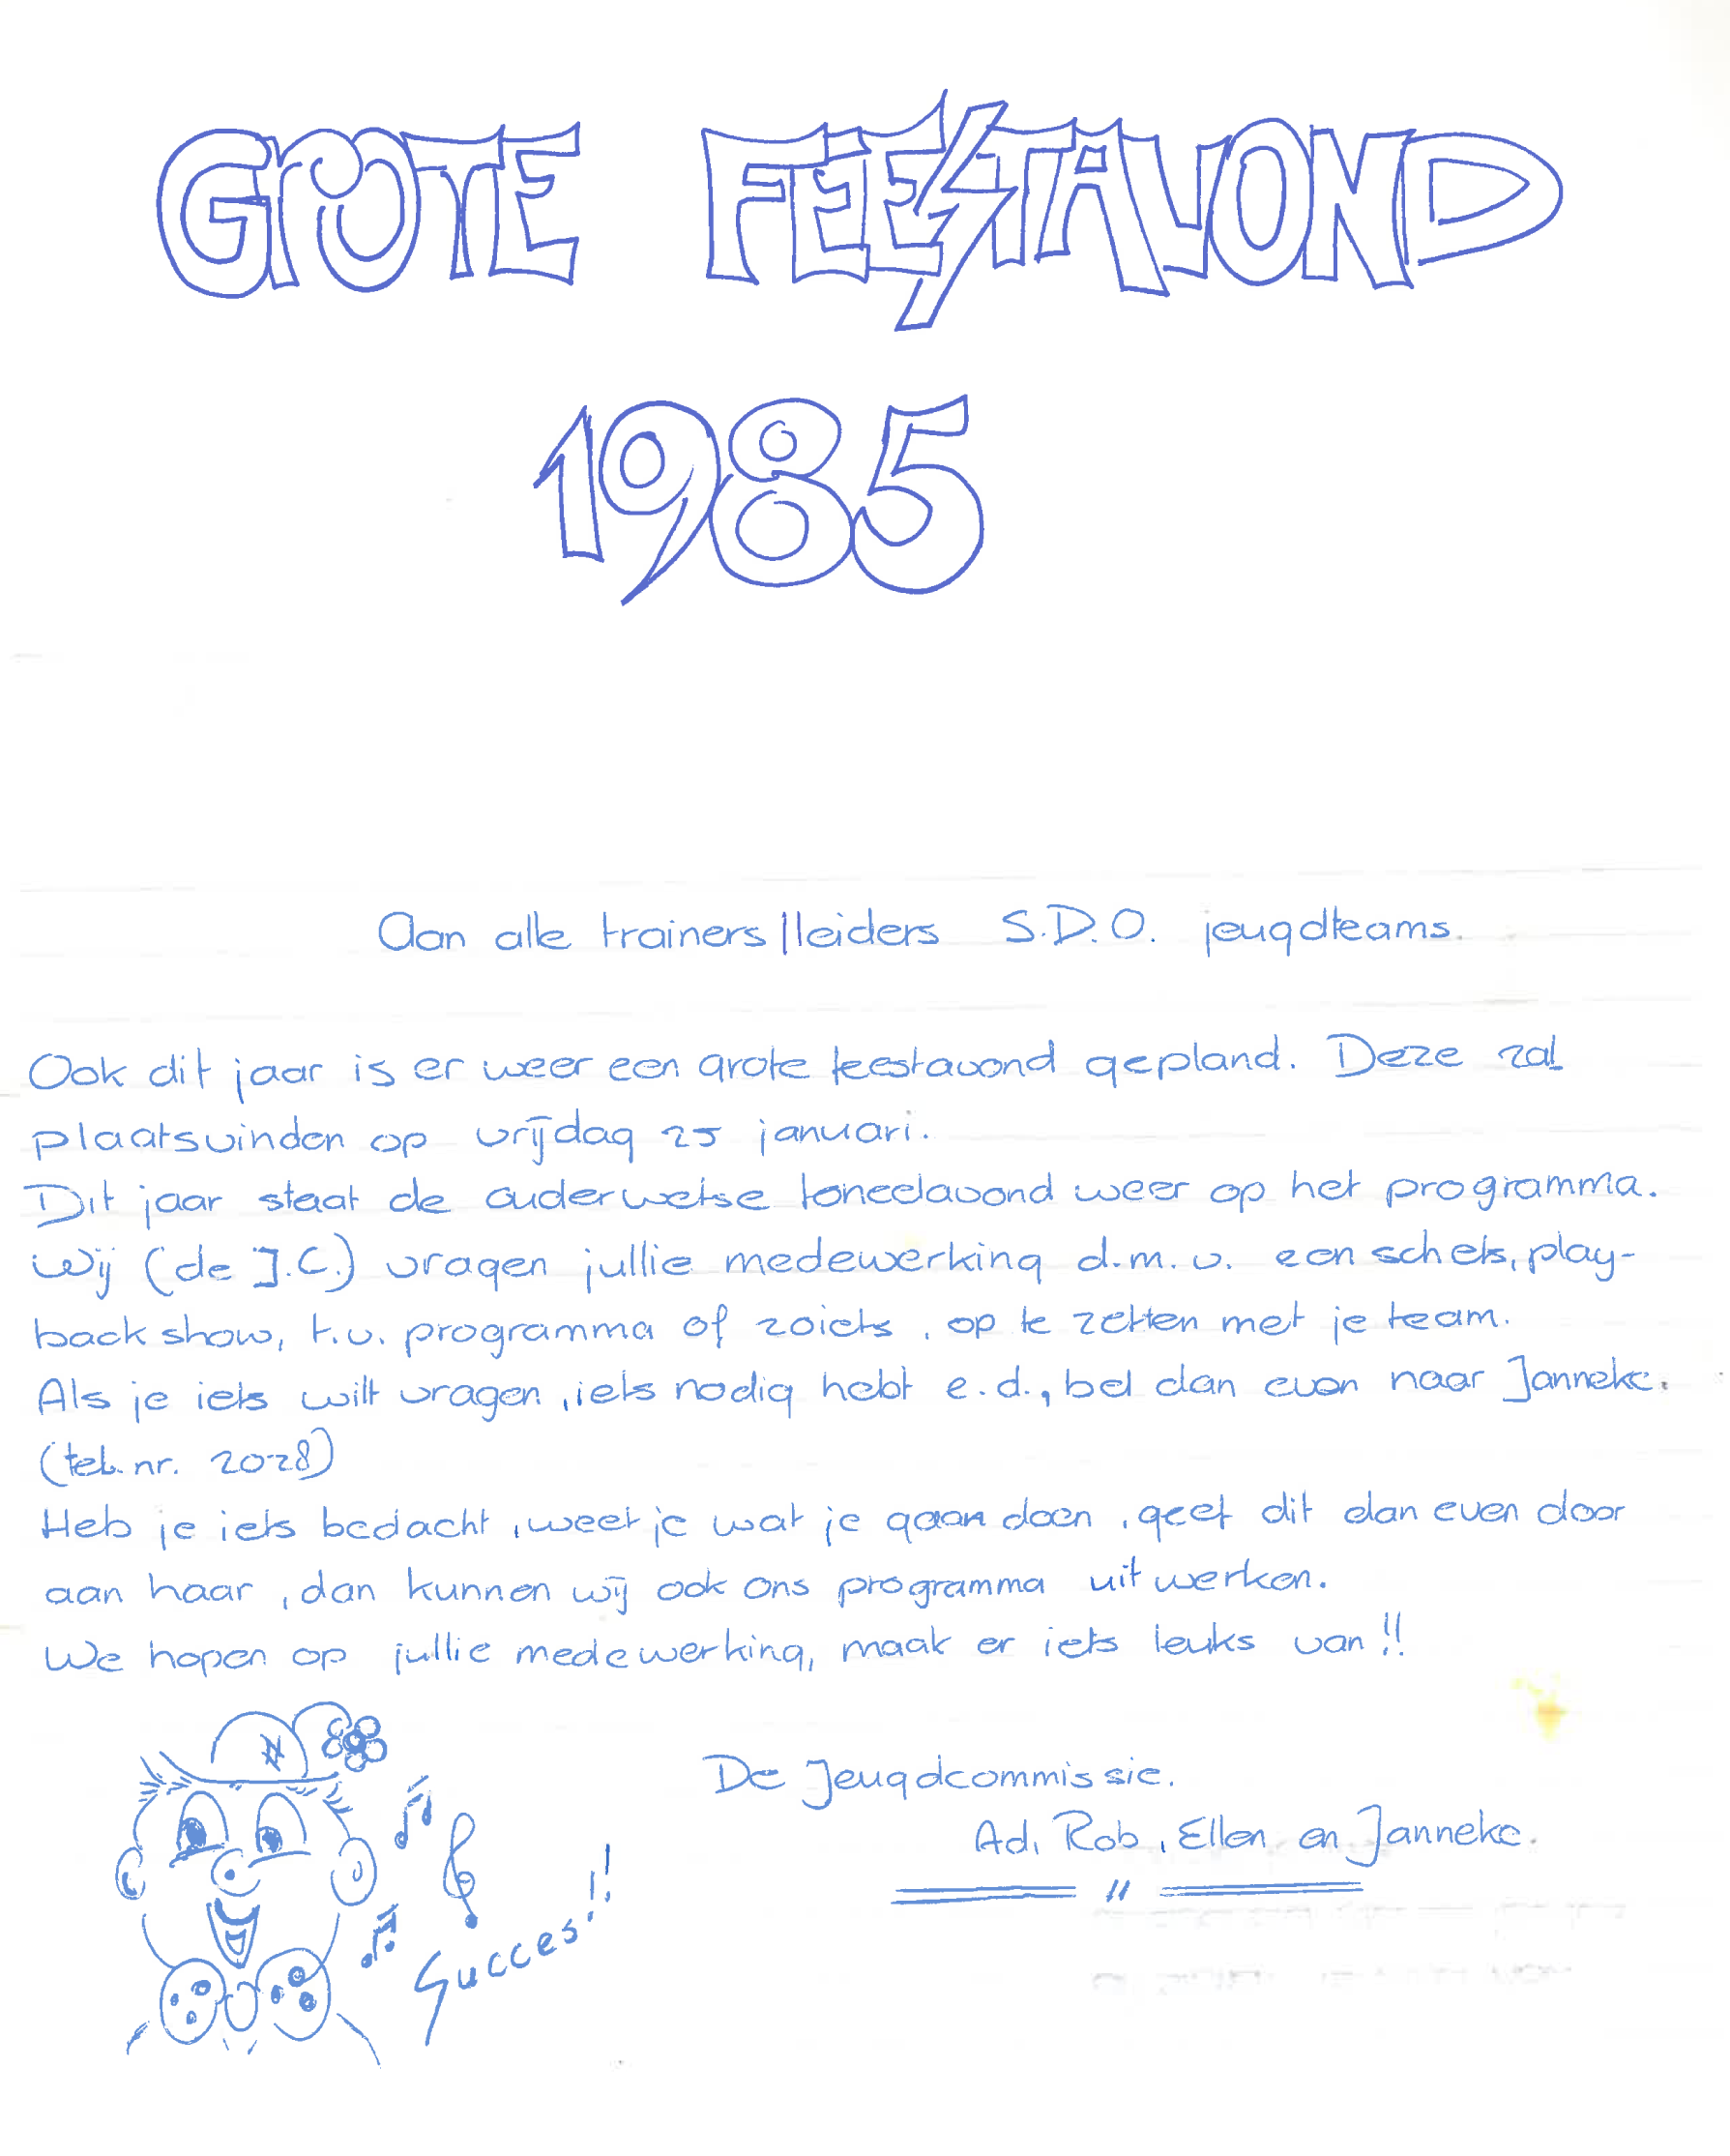 GROTE FEESTAVOND
1985
Aan alle trainers/leiders S.D.O. jeugdteams.
Ook dit jaar is er weer een grote feestavond gepland. Deze zal
plaatsvinden op vrijdag 25 januari.
Dit jaar staat de ouderwetse toneelavond weer op het programma.
Wij (de J.C.) vragen jullie medewerking d.m.v. een schets, play-
back show, t.v. programma of zoiets, op te zetten met je team.
Als je iets wilt vragen, iets nodig hebt e.d., bel dan even naar Janneke.
(tel. nr. 2028)
Heb je iets bedacht, weet je wat je gaan doen, geef dit dan even door
aan haar, dan kunnen wij ook ons programma uitwerken.
We hopen op jullie medewerking, maak er iets leuks van!!
De Jeugdcommissie.
Ad, Rob, Ellen en Janneke.
Succes!!